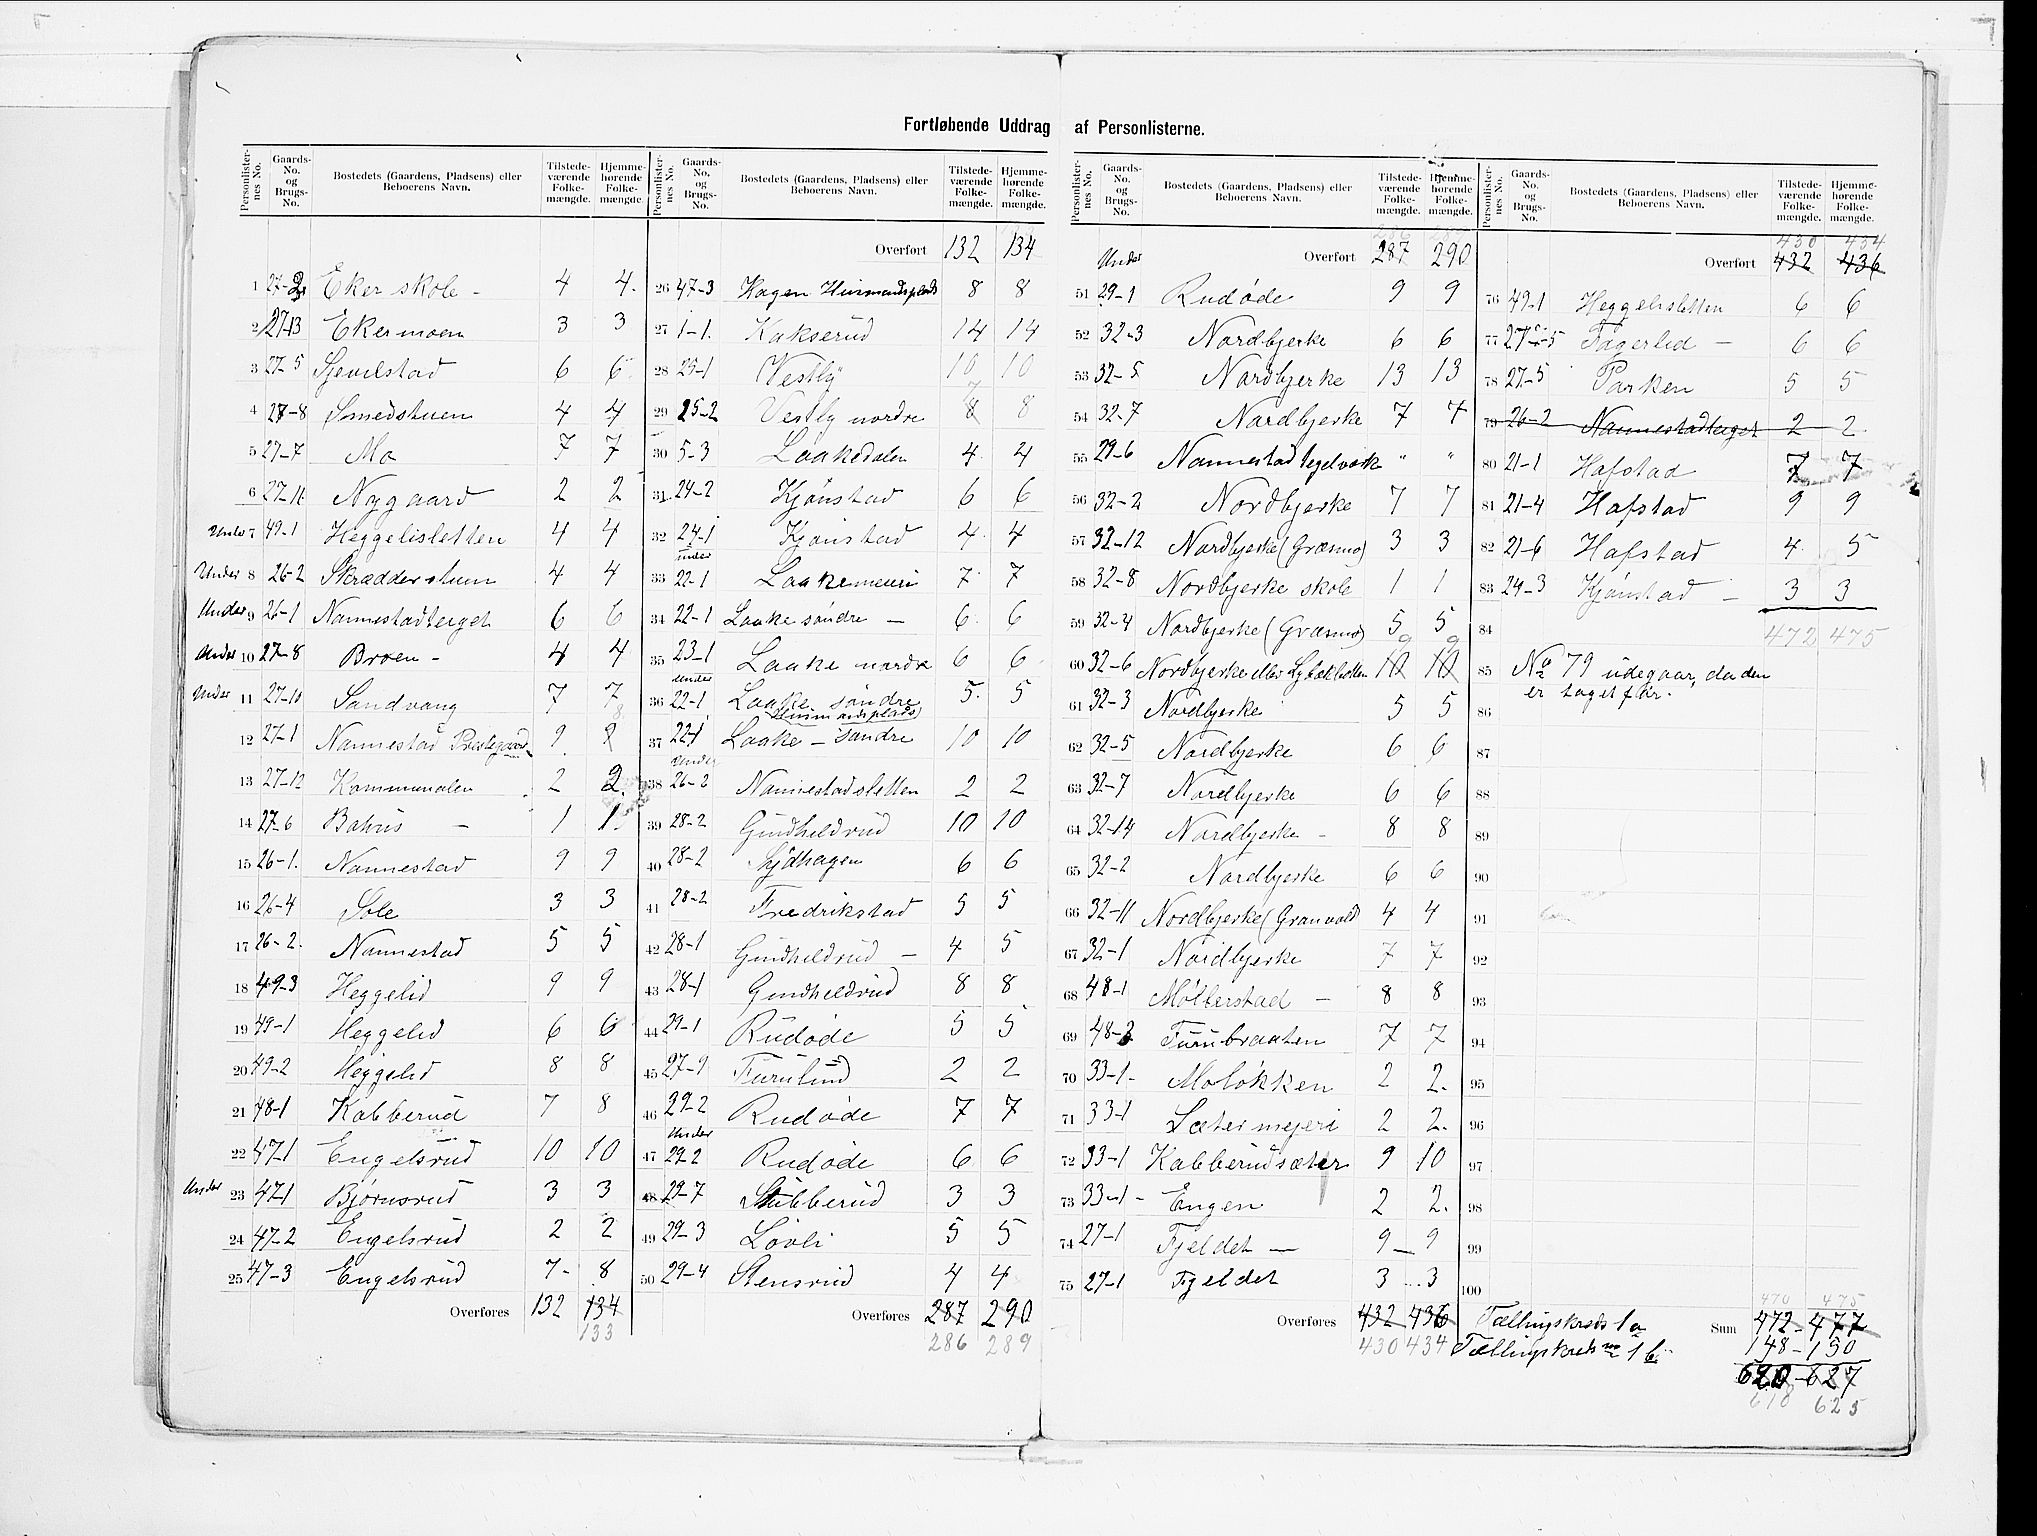 Fortløbende Uddrag af Personlisterne.
Personlisternes No. Gaards-No. og Brugs-No. Bostedets (Gaardens, Pladsens) eller Beboerens Navn. Tilstedeværende Folkemængde. Hjemmehørende Folkemængde.
1 27-2 Eker skole - 4 4.
2 27-13 Ekermoen 3 3
3 27-5 Sjevelstad 6 6
4 27-8 Smedstuen 4 4
5 27-7 Mo 7 7
6 27-11 Nygaard 2 2
Under 7 49-1 Heggelisletten 4 4
Under 8 26-2 Skrædderstuen 4 4
Under 9 26-1 Nannestadteiget 6 6
Under 10 27-8 Broen - 4 4
Under 11 27-10 Sandvang 7 7
12 27-1 Nannestad Prestegaard 9 9 8
13 27-12 Kommunalen 2 2.
14 27-6 Bahus - 1 1
15 26-1. Nannestad 9 9
16 26-4 Sole 3 3
17 26-2. Nannestad 5 5
18 49-3 Heggelid 9 9
19 49-1 Heggelid 6 6
20 49-2 Heggelid 8 8
21 48-1 Kabberud 7 8
22 47-1 Engelsrud 10 10
Under 23 47-1 Bjørnsrud 3 3
24 47-2 Engelsrud 2 2
25 47-3 Engelsrud 7 8
Overføres 132 134
133
Personlisternes No. Gaards-No. og Brugs-No. Bostedets (Gaardens, Pladsens) eller Beboerens Navn. Tilstedeværende Folkemængde. Hjemmehørende Folkemængde.
Overført 132 134
26 47-3 Hagen Husmandsplads 8 8
27 1-1. Kakserud 14 14
28 25-1 Vestby 10 10
29 25-2 Vestby nordre 8 7 8
30 5-3 Laakedalen 4 4
31. 24-2 Kjønstad 6 6
32 24-1 Kjønstad 4 4
under
33 22-1 Laakemeieri 7 7
34 22-1 Laake søndre - 6 6
35 23-1 Laake nordre 6 6
under
36 22-1 Laake søndre 5 5
(Husmandsplads)
37 22-1 Laake - søndre 10 10
Under
38 26-2 Nannestadsletten 2 2
39 28-2 Gundheldrud 10 10
40 28-2 Nydhagen 6 6
41 28-2 Fredrikstad 5 5
42 28-1 Gundheldrud - 4 5
43 28-1 Gundheldrud 8 8
44 29-1 Rudøde 5 5
45 27-9 Furulund 2 2
46 29-2 Rudøde 7 7
Under
47 29-2 Rudøde 6 6
48 29-7 Stubberud 3 3
49 29-3 Løvli 5 5
50 29-4 Stensrud 4 4
Overføres 287 290
286 289
Personlisternes No. Gaards-No. og Brugs-No. Bostedets (Gaardens, Pladsens) eller Beboerens Navn. Tilstedeværende Folkemængde. Hjemmehørende Folkemængde.
Under Overført 287 290
51 29-1 Rudøde 9 9
52 32-3 Nordbjerke 6 6
53 32-5 Nordbjerke 13 13
54 32-7 Nordbjerke 7 7
55 29-6 Nannestad teglverk " "
56 32-2 Nordbjerke 7 7
57 32-12 Nordbjerke (Græsmo) 3 3
58 32-8 Nordbjerke skole 1 1
59 32-4 Nordbjerke (Græsmo) 5 5
60 32-6 Nordbjerke eller Lybæksletten 10 9 10 9
61 32-3 Nordbjerke 5 5
62 32-5 Nordbjerke 6 6
63 32-7 Nordbjerke 6 6
64 32-14 Nordbjerke - 8 8
65 32-2 Nordbjerke 6 6
66 32-11 Nordbjerke (Granvold 4 4
67 32-1 Nordbjerke 7 7
68 48-1 Møllerstad - 8 8
69 48-3 Furubraaten 7 7
70 33-1- Moløkken 2 2.
71 33-1 Sæter mejeri 2 2.
72 33-1 Kabberudsæter 9 10
73 33-1- Engen 2 2.
74 27-1 Fjeldet - 9 - 9
75 27-1 Fjeldet 3 3
Overføres 432 436
430 434
Personlisternes No. Gaards-No. og Brugs-No. Bostedets (Gaardens, Pladsens) eller Beboerens Navn. Tilstedeværende Folkemængde. Hjemmehørende Folkemængde.
430 434
Overført 432 436
76 49-1 Heggelisletten 6 6
77 27-5 Fagerlid - 6 6
78 27-5 Parken 5 5
79 26-2 Nannestadteiget 2 2
80 21-1 Hafstad 7 7
81 21-4 Hafstad 9 9
82 21-6 Hafstad 4 5
83 24-3 Kjønstad - 3 3
84 472 475
85 No 79 udegaar, da den
er taget før.
86
87
88
89
90
91
92
93
94
95
96
97
98
99
100
470 475
Tællingskreds 1a Sum 472 - 477
Tællingskreds no 1 b 148 - 150
620 - 627
618 625